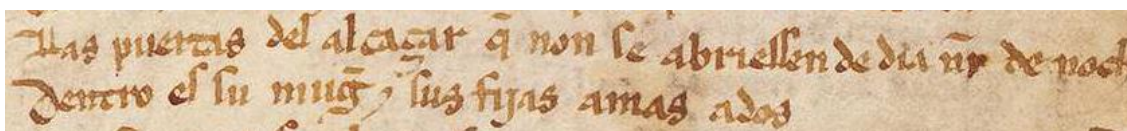 Las puertas del alcaçar q̃ non se abriessen de dia nȳ de noch
Dentro es su mug̃ ⁊ sus fijas amas ados